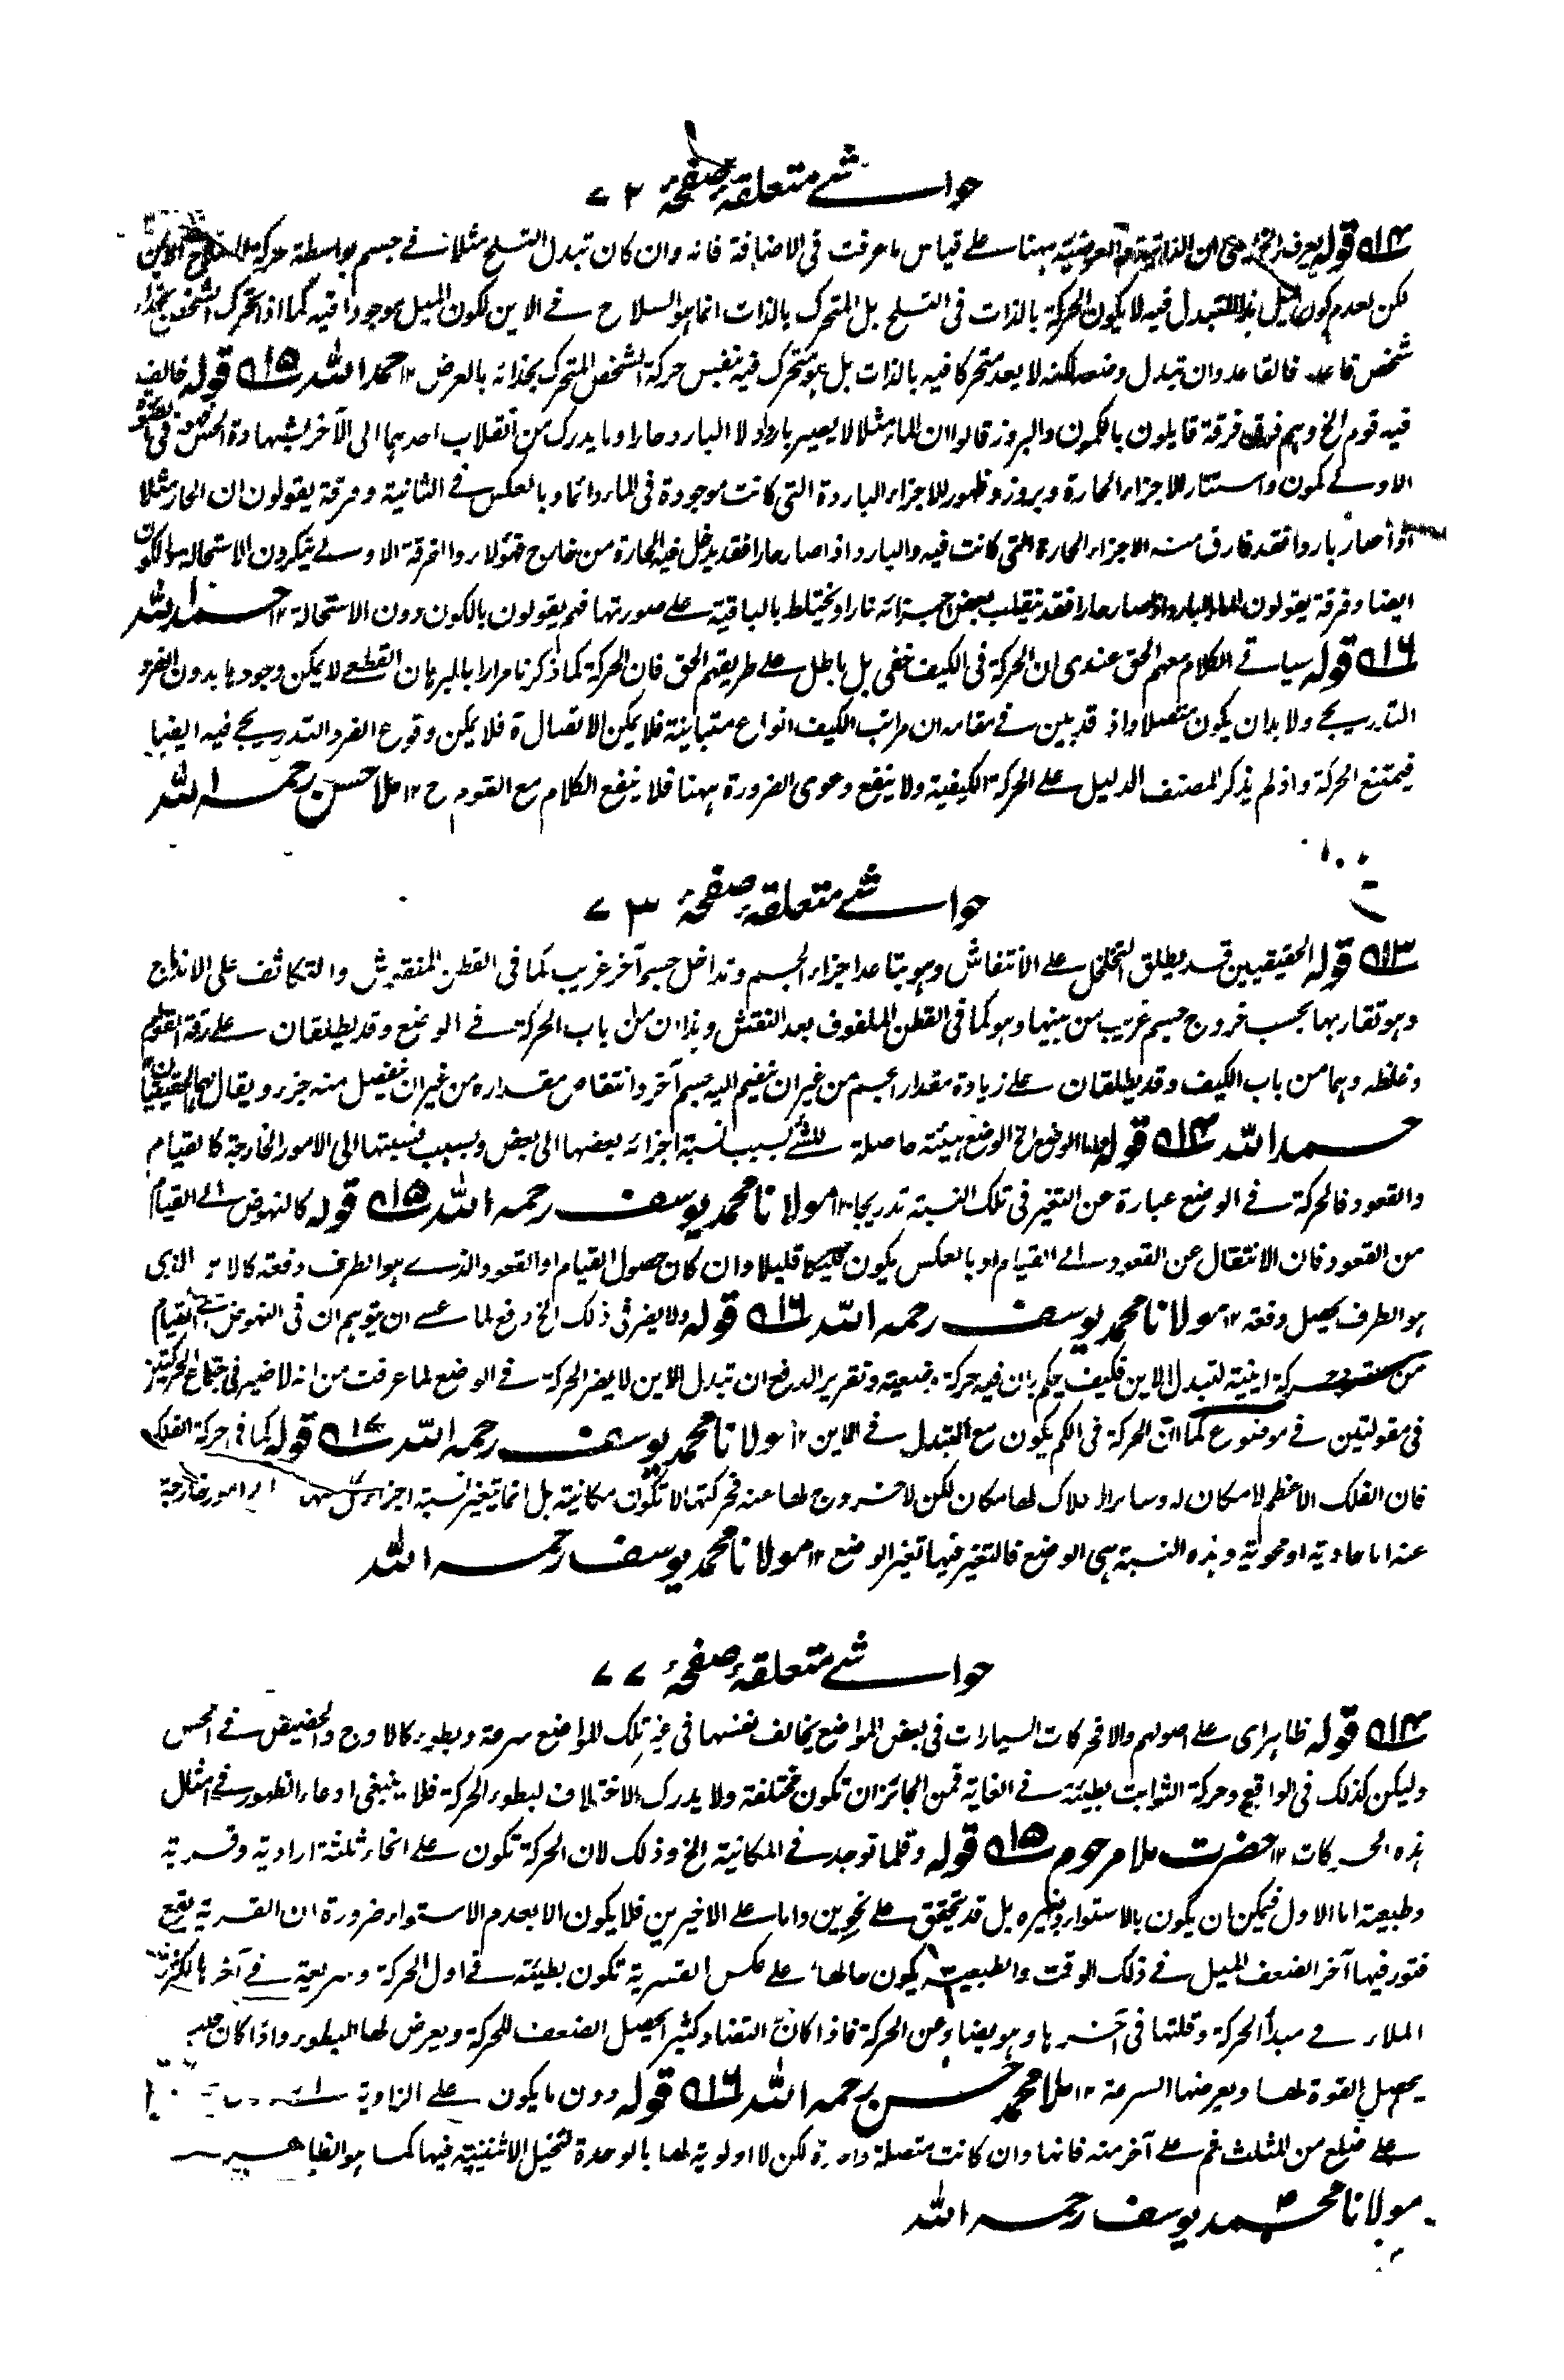 حواشے متعلقۂ صفحۂ ۷۲
۱۴ قولہ يعرف الخ ان الذاتية والعرضية ہہنا علے قياس ما عرفت فى الاضافة فانہ وان كان تبدل التسلح مثلا فے جسم بواسطة حركة السلاح الاين
لكن لعدم كون الميل بذا المتبدل فيہ لا يكون الحركة بالذات فى التسلح بل المتحرك بالذات انما ہو السلاح فے الاين لكون الميل موجودا فيہ كما اذا تحرك الشخص بحذاء
شخص قاعد فالقاعد وان تبدل وضعہ لكنہ لا يعد متحركا فيہ بالذات بل ہو متحرك فيہ بنفس حركة الشخص المتحرك بحذائہ بالعرض ۱۲ حمد اللّٰہ ۱۵ قولہ خالف
فيہ قوم الخ وہم فرق فرقة قايلون بالكمون والبروز قالوا ان الماء مثلا لا يصير باردا ولا البارد حارا وما يدرك من انقلاب احدہما الى الآخر بشہادة الحس فہو فى الصورة
الاولے كمون واستتار للاجزاء الحارة وبروز وظہور للاجزاء الباردة التى كانت موجودة فى الماء دائما وبالعكس فے الثانية وفرقة يقولون ان الحار مثلا
اذا صار باردا فقد فارق منہ الاجزاء الحارة التى كانت فيہ والبارد اذا صار حارا فقد يدخل فيہ الحارة من خارج فہؤلاء والفرقة الاولے ينكرون الاستحالة والكون
ايضا وفرقة يقولون الماء البارد اذا صار حارا فقد تنقلب بعض اجزائہ نارا ويختلط بالباقية علے صورتہا فہم يقولون بالكون دون الاستحالة ۱۲ حمد اللّٰہ
۱۶ قولہ سياتے الكلام معہم الحق عندى ان الحركة فى الكيف خفى بل باطل علے طريقہم الحق فان الحركة كما ذكرنا مرارا بالبرہان القطعے لا يمكن وجودہا بدون الفرد
التدريجے ولا بد ان يكون متصلا واذ قد بين فے مقامہ ان مراتب الكيف انواع متباينة فلا يمكن الاتصال فلا يمكن وقوع الفرد التدريجے فيہ ايضا
فيمتنع الحركة واذ لم يذكر المصنف الدليل علے الحركة الكيفية ولا ينفع دعوى الضرورة ہہنا فلا ينفع الكلام مع القوم ح ۱۲ ملا حسن رحمہ اللّٰہ
حواشے متعلقۂ صفحۂ ۷۳
۱۳ قولہ الحقيقيين قد يطلق التخلخل علے الانتفاش وہو يتباعد اجزاء الجسم وتداخل جسم آخر غريب كما فى القطن المنفوش والتكاثف على الاندماج
وہو تقاربہا بحسب خروج جسم غريب من بينہا وہو كما فى القطن الملفوف بعد النفش وہذان من باب الحركة فے الوضع وقد يطلقان علے رقة القوام
وغلظہ وہما من باب الكيف وقد يطلقان علے زيادة مقدار الجسم من غير ان ينضم اليہ جسم آخر وانتقاص مقدارہ من غير ان ينفصل منہ جزء ويقال لہما الحقيقيان
حمد اللّٰہ ۱۴ قولہ واما الوضع الخ الوضع ہيئة حاصلة للشئے بسبب نسبة اجزائہ بعضہا الى بعض وبسبب نسبتہا الى الامور الخارجة كالقيام
والقعود فالحركة فے الوضع عبارة عن التغير فى تلك النسبة تدريجا ۱۲ مولانا محمد يوسف رحمہ اللّٰہ ۱۵ قولہ كالنہوض الے القيام
من القعود فان الانتقال عن القعود الے القيام او بالعكس يكون قليلا وان كان حصول القيام او القعود الذے ہو الطرف دفعة الذى
ہو الطرف يحصل دفعة ۱۲ مولانا محمد يوسف رحمہ اللّٰہ ۱۶ قولہ ولا يضر فى ذلك الخ دفع لما عسے ان يتوہم ان فى النہوض الے القيام
من حركة اينية لتبدل الاين فكيف يحكم بان فيہ حركة وضعية وتقرير الدفع ان تبدل الاين لا يضر الحركة فے الوضع لما عرفت من انہ لا ضير فى اجتماع الحركتين
فى مقولتين فے موضوع كما ان الحركة فى الكم يكون مع التبدل فے الاين ۱۲ مولانا محمد يوسف رحمہ اللّٰہ ۱۷ قولہ كما فى حركة الفلك
فان الفلك الاعظم لا مكان لہ وسائر الافلاك لہا مكان لكن لا خروج لہا عنہ فحركتہا لا تكون مكانية بل انما يتغير نسبة اجزاء امور خارجة
عنہ اما حاوية او محوية وہذہ النسبة ہى الوضع فالتغير فيہا تغير الوضع ۱۲ مولانا محمد يوسف رحمہ اللّٰہ
حواشے متعلقۂ صفحۂ ۷۷
۱۴ قولہ ظاہرا ى علے اصولہم والا فحركات السيارات فى بعض المواضع يخالف نفسہا فى غير تلك المواضع سرعة وبطوء كالاوج والحضيض فے الحس
وليكن كذلك فى الواقع وحركة الثوابت بطيئة فے الغاية فمن الجائز ان تكون مختلفة ولا يدرك الاختلاف لبطوء الحركة فلا ينبغى ادعاء الظہور فے امثال
ہذہ الحركات ۱۲ حضرت ملا مرحوم ۱۵ قولہ وقلما توجد فے المكانية الخ وذلك لان الحركة تكون علے انحاء ثلثة ارادية وقسرية
وطبيعية اما الاول فيمكن ان يكون بالاستواء وغيرہ بل قد تحقق علے نحوين واما علے الاخيرين فلا يكون الا بعدم الاستواء ضرورة ان القسرية يقع
فتور فيہا آخرا لضعف الميل فے ذلك الوقت والطبيعية يكون حالہا علے عكس القسرية تكون بطيئة فے اول الحركة وسريعة فے آخرہا لكثرة
الملاء فے مبدأ الحركة وقلتہا فى آخرہا وہو يضاد عن الحركة فاذا كان التضاد كثيرا يحصل الضعف للحركة ويعرض لہا البطوء واذا كان
يحصل القوة لہا ويعرضہا السرعة ۱۲ ملا محمد حسن رحمہ اللّٰہ ۱۶ قولہ دون ما يكون علے الزاوية
علے ضلع من المثلث ثم علے آخر منہ فانہا وان كانت متصلة واحدة لكن لا اولوية لہا بالوحدة لتخيل الاثنينية فيہا كما ہو الظاہر
مولانا محمد يوسف رحمہ اللّٰہ